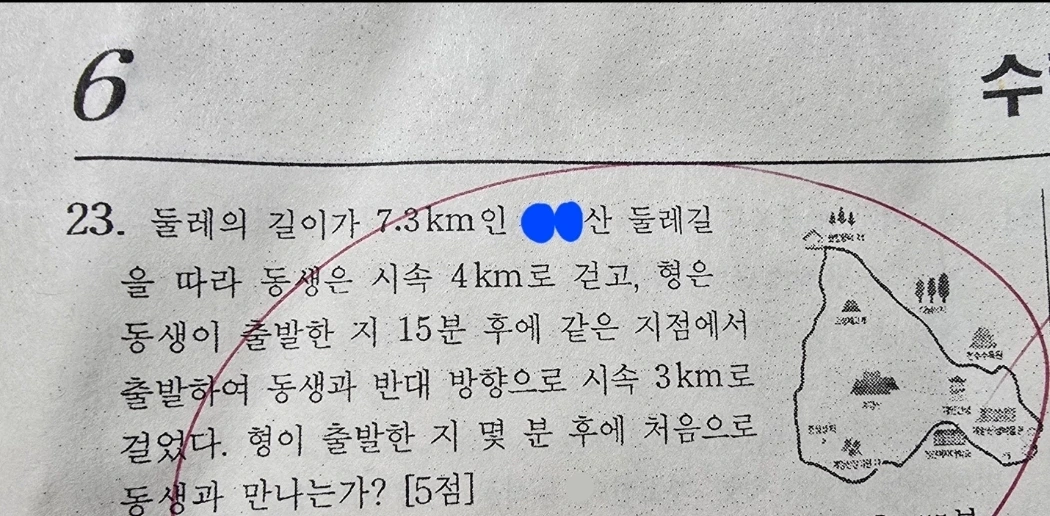 6
수
23. 둘레의 길이가 7.3km인 산 둘레길
을 따라 동생은 시속 4km로 걷고, 형은
동생이 출발한 지 15분 후에 같은 지점에서
출발하여 동생과 반대 방향으로 시속 3km로
걸었다. 형이 출발한 지 몇 분 후에 처음으로
동생과 만나는가? [5점]